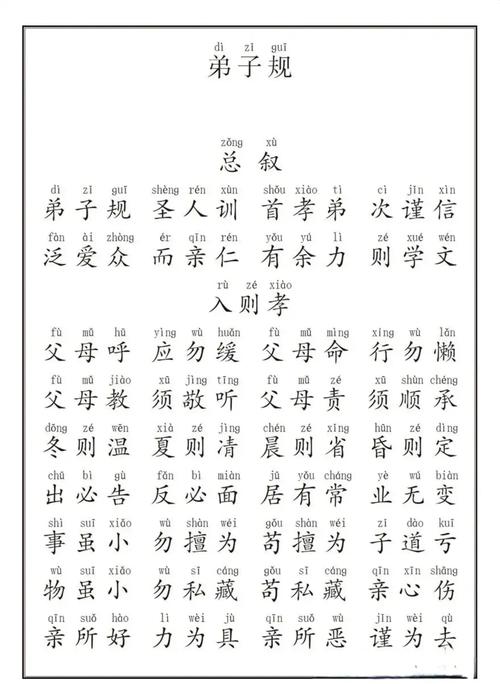 dì zǐ guī
弟子规
zǒng xù
总叙
dì zǐ guī shèng rén xùn shǒu xiào tì cì jǐn xìn
弟子规 圣人训 首孝弟 次谨信
fàn ài zhòng ér qīn rén yǒu yú lì zé xué wén
泛爱众 而亲仁 有余力 则学文
rù zé xiào
入则孝
fù mǔ hū yìng wù huǎn fù mǔ mìng xíng wù lǎn
父母呼 应勿缓 父母命 行勿懒
fù mǔ jiào xū jìng tīng fù mǔ zé xū shùn chéng
父母教 须敬听 父母责 须顺承
dōng zé wēn xià zé jìng chén zé xǐng hūn zé dìng
冬则温 夏则凊 晨则省 昏则定
chū bì gào fǎn bì miàn jū yǒu cháng yè wú biàn
出必告 反必面 居有常 业无变
shì suī xiǎo wù shàn wéi gǒu shàn wéi zǐ dào kuī
事虽小 勿擅为 苟擅为 子道亏
wù suī xiǎo wù sī cáng gǒu sī cáng qīn xīn shāng
物虽小 勿私藏 苟私藏 亲心伤
qīn suǒ hào lì wèi jù qīn suǒ wù jǐn wèi qù
亲所好 力为具 亲所恶 谨为去